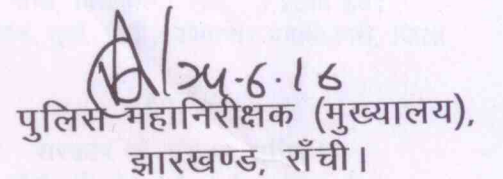 24.6.16
पुलिस महानिरीक्षक (मुख्यालय),
झारखण्ड, राँची।